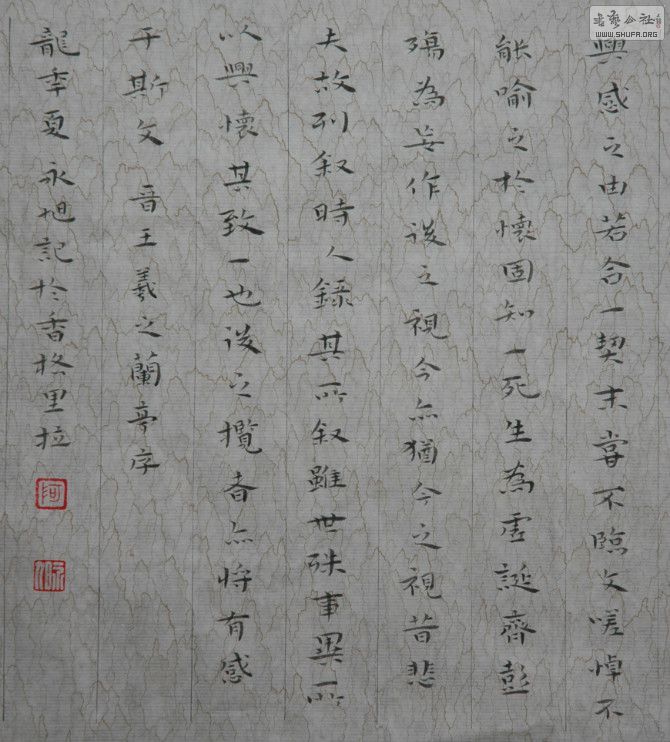 興感之由若合一契未嘗不臨文嗟悼不
能喻之於懷固知一死生為虛誕齊彭
殤為妄作後之視今亦猶今之視昔悲
夫故列叙時人錄其所叙雖世殊事異所
以興懷其致一也後之攬者亦將有感
于斯文 晋王羲之蘭亭序
龍年夏 永旭記於香格里拉
書藝公社
WWW.SHUFA.ORG